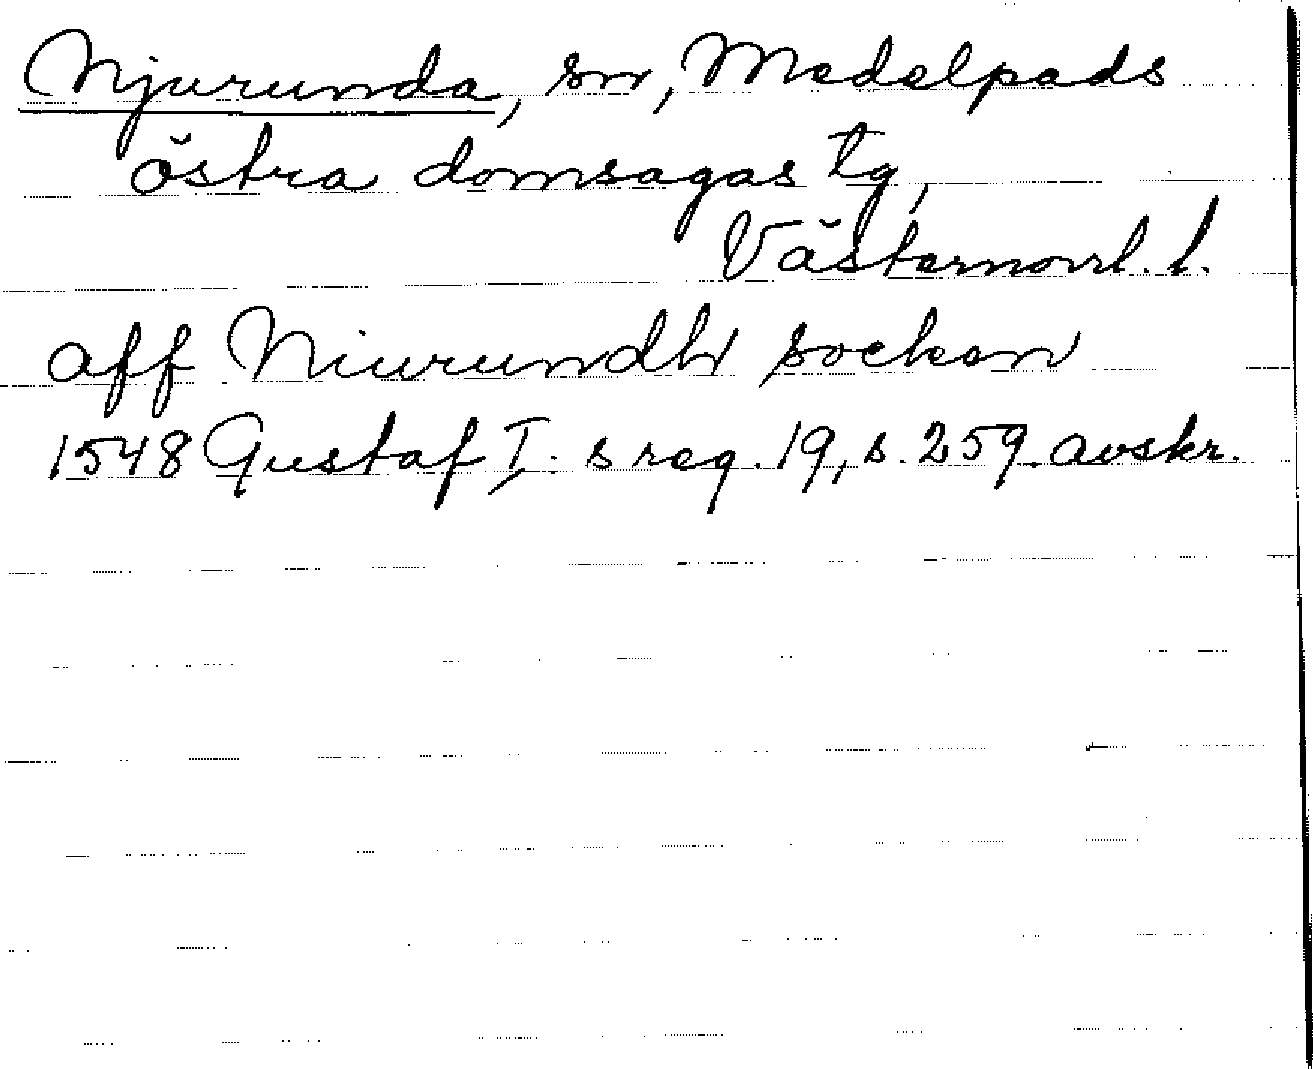 Njurunda, sn, Medelpads
östra domsagas tg,
Västernorrl. l.
aff Niurundh socken
1548 Gustaf I. s reg. 19, s. 259. avskr.